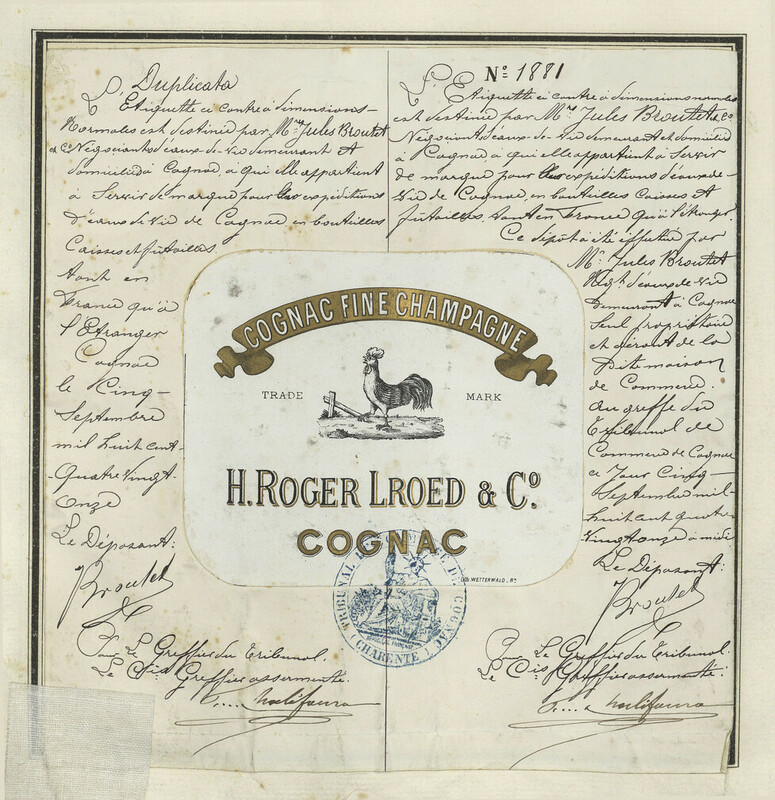 Duplicata
L'Etiquette ci contre à dimensions
Normales est destinée par Mr Jules Broutet
et Ce Négociants d'eaux-de-vie demeurant et
domicilié à Cognac, à qui elle appartient
à Servir de marque pour les expéditions
d'eaux de vie de Cognac en bouteilles
Caisses et futailles
tant en
France qu'à
l'Etranger
Cognac
le Cinq
Septembre
mil huit cent
Quatre Vingt
Onze
Le Déposant:
Broutet
Pour Le Greffier du Tribunal.
Le Cis Greffier assermenté.
No 1881
L'Etiquette ci contre à dimensions normales
est destinée par Mr Jules Broutet & Ce
Négociants d'eaux-de-vie demeurant et domicilié
à Cognac à qui elle appartient à Servir
de marque pour les expéditions d'eaux-de-
vie de Cognac, en bouteilles Caisses et
futailles, tant en France qu'à l'étranger.
Ce dépôt a été effectué par
Mr Jules Broutet
Négt d'eaux de vie
demeurant à Cognac
Seul propriétaire
et gérant de la
dite maison
de Commerce.
au greffe du
Tribunal de
Commerce de Cognac
ce jour Cinq
Septembre mil
huit cent quatre
Vingt onze à midi
Le Déposant:
Broutet
Pour Le Greffier du Tribunal.
Le Cis Greffier assermenté.
COGNAC FINE CHAMPAGNE
TRADE MARK
H. ROGER LROED & Co.
COGNAC
WETTERWALD, Bx
TRIBUNAL DE COMMERCE DE COGNAC
(CHARENTE)